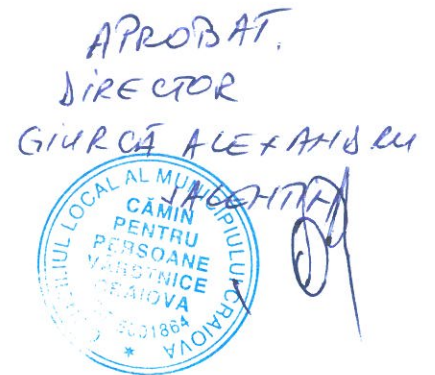 APROBAT.
DIRECTOR
GIURCĂ ALEXANDRU
VALENTIN
CONSILIUL LOCAL AL MUNICIPIULUI CRAIOVA
CĂMIN
PENTRU
PERSOANE
VÂRSTNICE
CRAIOVA